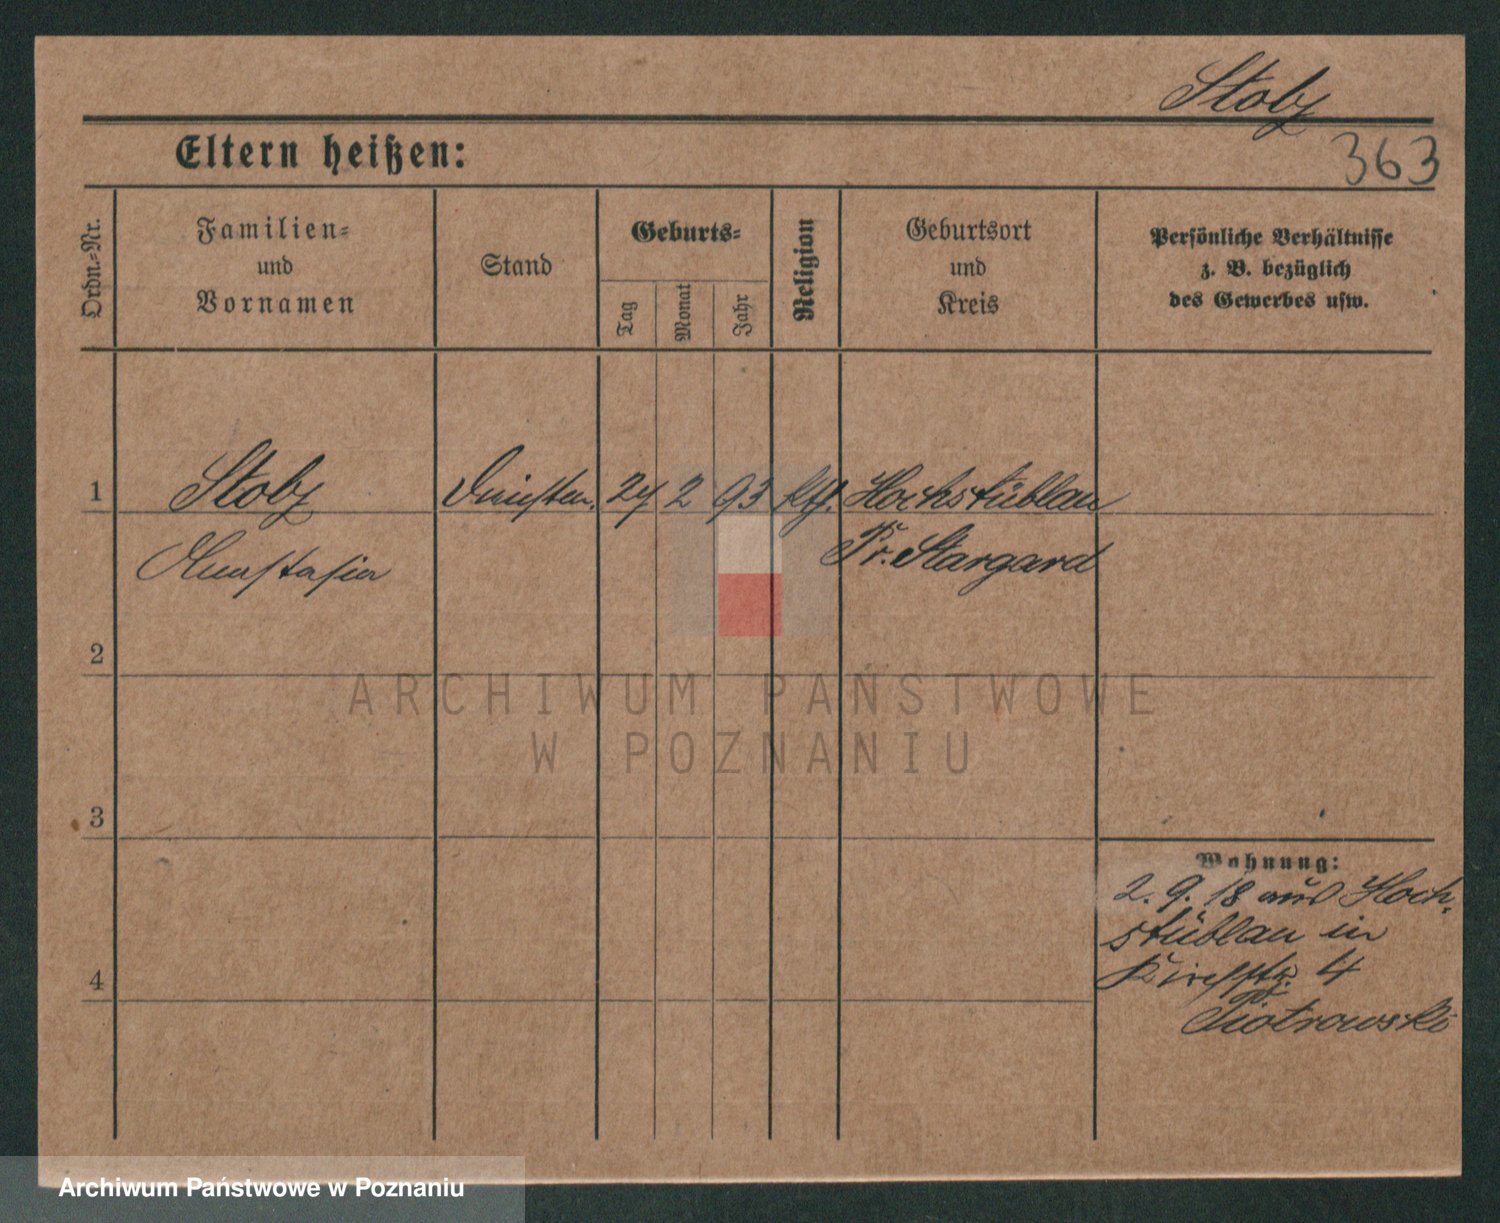 Stoby
363
Eltern heißen:
Ordn.-Nr.
Familien-
und
Vornamen
Stand
Geburts-
Tag
Monat
Jahr
Religion
Geburtsort
und
Kreis
Persönliche Verhältnisse
z. B. bezüglich
des Gewerbes usw.
1
Stoby
24 2 93 Hochstüblau
Anastasia
Pr. Stargard
2
ARCHIWUM PAŃSTWOWE
W POZNANIU
3
Wohnung:
2. 9. 18 aus Hoch-
stüblau in
4
Kirchstr. 4
Piotrowski
Archiwum Państwowe w Poznaniu